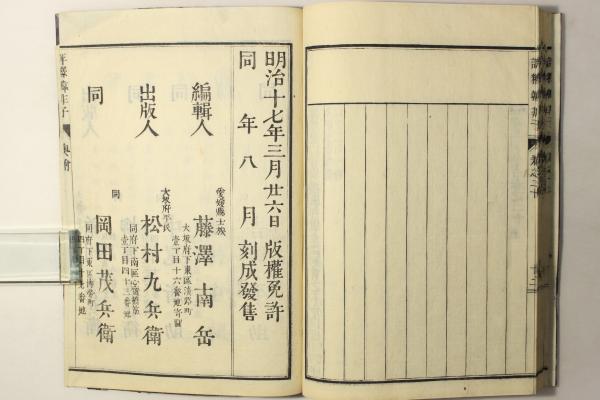 明治十七年三月廿六日版權免許
同年八月刻成發售
愛媛縣士族
編輯人 藤澤南岳
大坂府下東區淡路町
壹丁目十六番地寄留
大坂府平民
出版人 松村九兵衛
同府下南區心齋橋筋
壹丁目四十三番地
同
同 岡田茂兵衛
同府下東區
四丁目